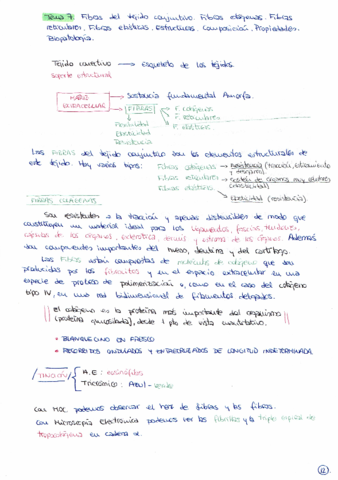 Tema 7: Fibras del tejido conjuntivo. Fibras colágenas. Fibras
reticulares. Fibras elásticas. Estructuras. Composición. Propiedades.
Biopatología.
Tejido conectivo → esqueleto de los tejidos.
soporte estructural
MATRIZ EXTRACELULAR
Sustancia fundamental Amorfa.
FIBRAS
F. colágenas
F. reticulares
F. elásticas
Elasticidad
Resistencia
Las FIBRAS del tejido conjuntivo son los elementos estructurales de
este tejido. Hay varios tipos: Fibras colágenas
Fibras reticulares
Fibras elásticas
Elasticidad (resistencia)
FIBRAS COLÁGENAS
Son resistentes a la tracción y apenas distensibles de modo que
constituyen un material ideal para los ligamentos, fascias, tendones,
cápsulas de los órganos, esclerótica, dermis y estroma de los órganos. Además
son componentes importantes del hueso, dentina y del cartílago.
Las fibras están compuestas de moléculas de colágeno que son
producidas por los fibrocitos y en el espacio extracelular en una
especie de proceso de polimerización o, como en el caso del colágeno
tipo IV, en una red bidimensional de filamentos delgados.
El colágeno es la proteína más importante del organismo
(proteína glucosilada), desde 1 pto de vista cuantitativo.
• BLANQUECINO EN FRESCO
• RECORRIDOS ONDULADOS Y ENTRECRUZADOS DE LONGITUD INDETERMINADA
TINCIÓN
H.E: eosinófilas
Tricrómico: Azul - verde
Con MOC podemos observar el haz de fibras y las fibras.
Con Microscopía electrónica podemos ver las fibrillas y la triple hélice de
tropocolágeno en cadena α.
12